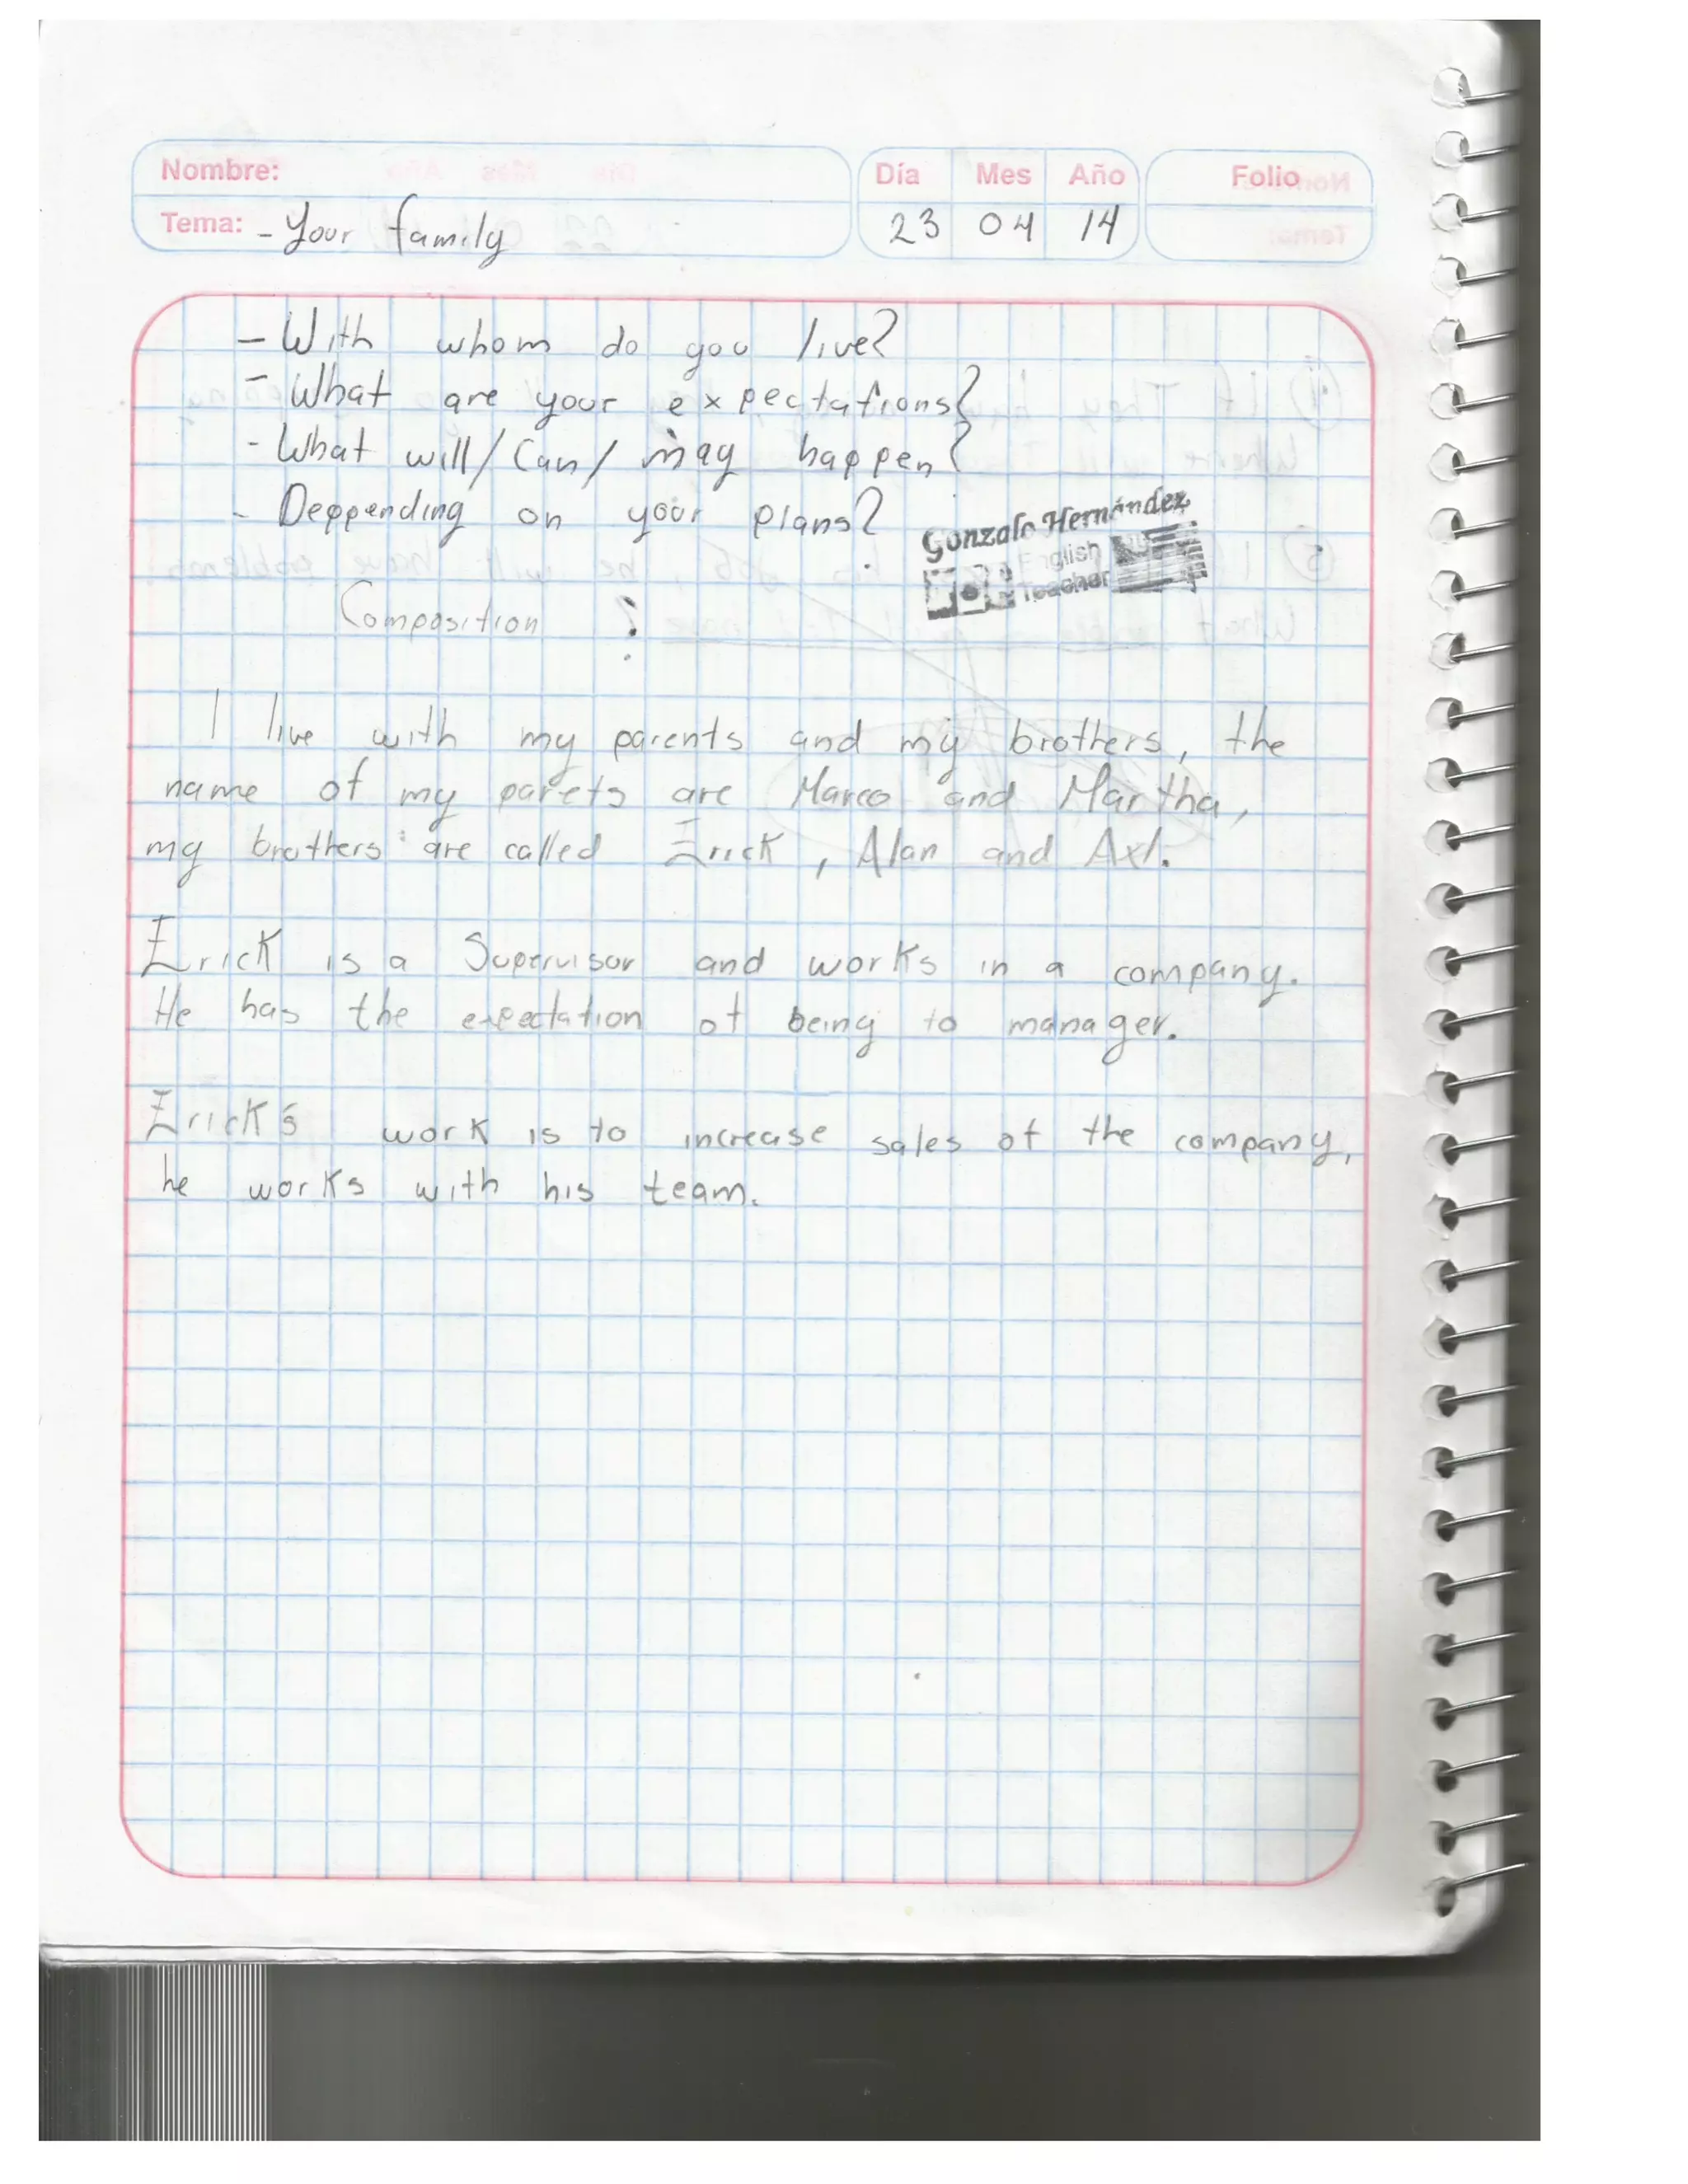 Nombre:
Día Mes Año Folio
Tema: - Your family 23 04 14
- With whom do you live?
- What are your expectations?
- What will/Can/may happen?
- Deppending on your plans?
Gonzalo Hernández
English
Teacher
Composition
I live with my parents and my brothers, the
name of my parets are Marco and Martha,
my brothers are called Erick, Alan and Axl.
Erick is a Supervisor and works in a company.
He has the expectation of being to manager.
Erick's work is to increase sales of the company,
he works with his team.